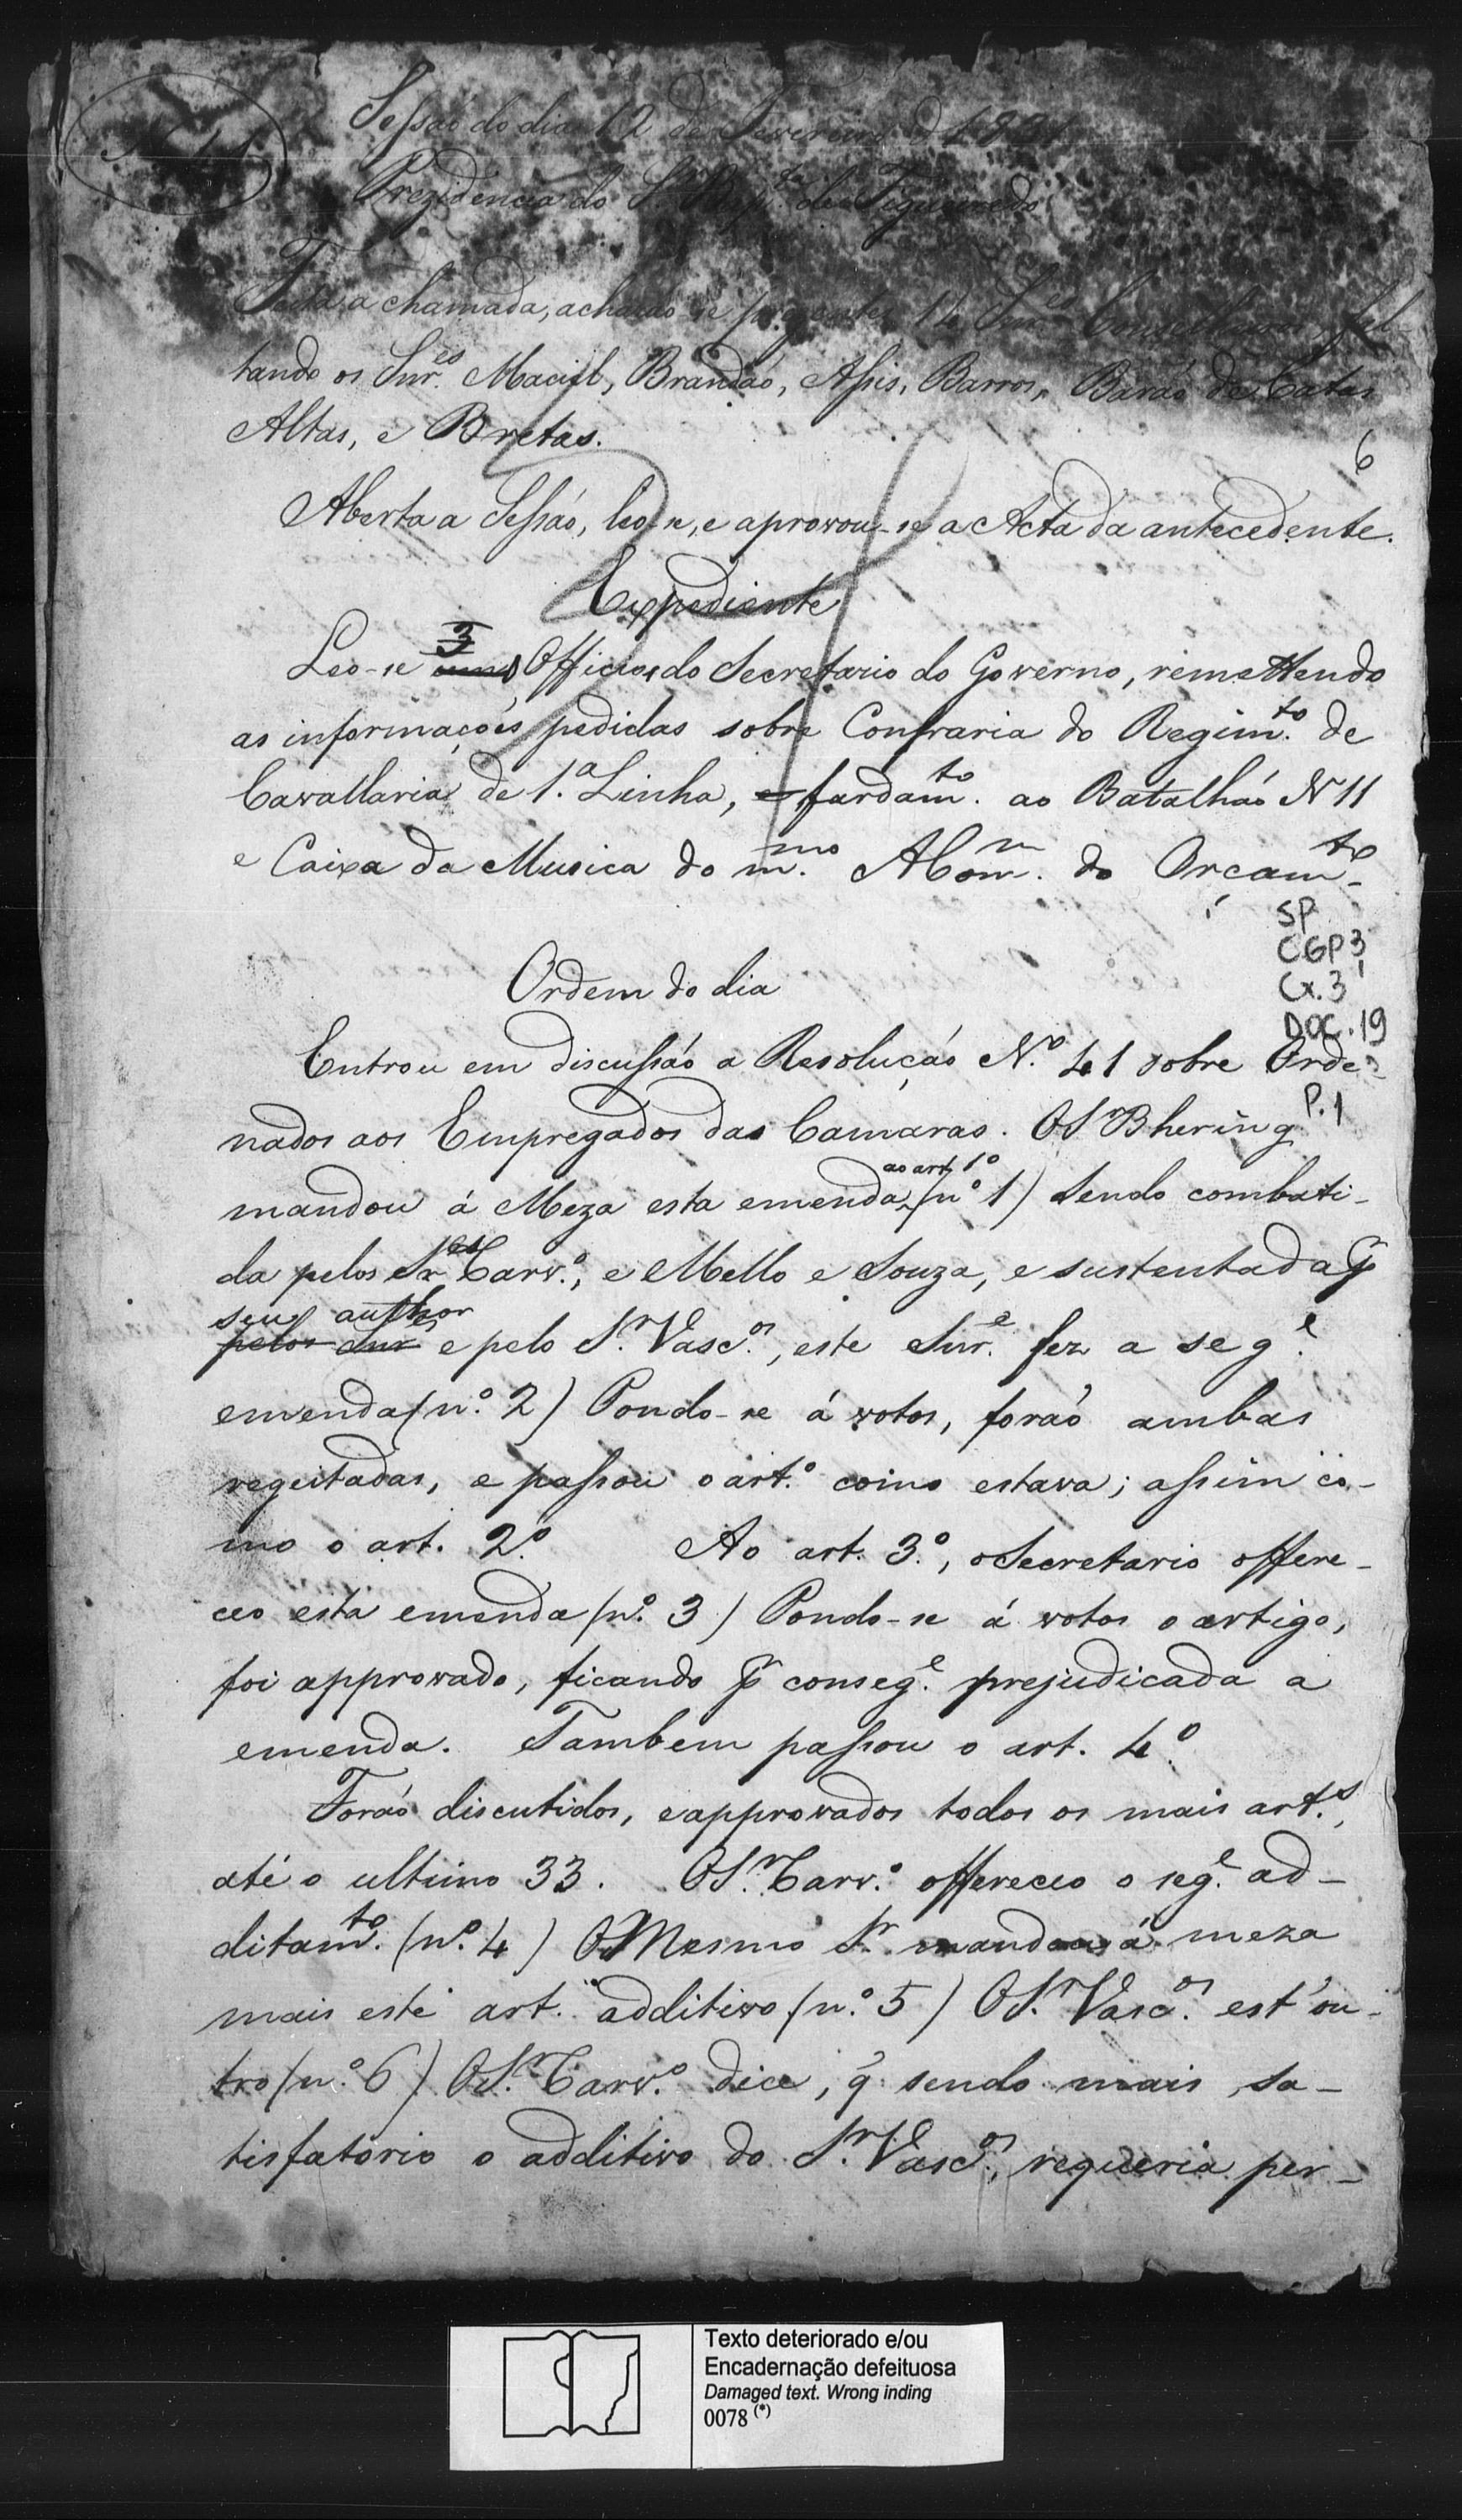 Sessaõ do dia 12 de Fevereiro d 183
Prezidencia do Sr. de Figueiredo
Feita a chamada, acharaõ se prezentes 12 Snr.es Conselheiros, fal-
tando os Snr.es Maciel, Brandaõ, Assis, Barros, Baraõ de Catas
Altas, e Bretas.
6
Aberta a Sessaõ, leo-se, e aprovou-se a Acta da antecedente.
Expediente
3
Leo-se Officios do Secretario do Governo, remettendo
as informações pedidas sobre Confraria do Regim.to de
Cavallaria de 1.a Linha, e fardam.to ao Batalhaõ N 11
e Caixa da Musica do m.mo A Com.m do Orcam.to
SP
CGP 3
Cx. 3
DOC. 19
P. 1
Ordem do dia
Entrou em discussaõ a Resoluçaõ N.o 41 sobre Orde-
nados aos Empregados das Camaras. O Sr Bhering
ao art 1o
mandou á Meza esta emenda (n.o 1) Sendo combati-
da pelos Sr.es Carv.o, e Mello e Souza, e sustentada p
seu author
pelos Snr e pelo S.r Vasc.os, este Snr.e fez a seg.e
emenda (n.o 2) Pondo-se á votos, foraõ ambas
regeitadas, e passou o art.o como estava; assim co-
mo o art. 2.o Ao art. 3.o, o Secretario offere-
ceo esta emenda (n.o 3) Pondo-se á votos o artigo,
foi approvado, ficando p conseg.e prejudicada a
emenda. Tambem passou o art. 4.o
Foraõ discutidos, e approvados todos os mais art.s,
até o ultimo 33. O S.r Carv.o offereceo o seg.e ad-
ditam.to (n.o 4) O Mesmo S.r mandou á meza
mais este art. additivo (n.o 5) O S.r Vasc.os est'ou-
tro (n.o 6) O S.r Carv.o dice, q̃ sendo mais sa-
tisfatorio o additivo do S.r Vasc.os, requeria per-
Texto deteriorado e/ou
Encadernação defeituosa
Damaged text. Wrong inding
0078 (*)